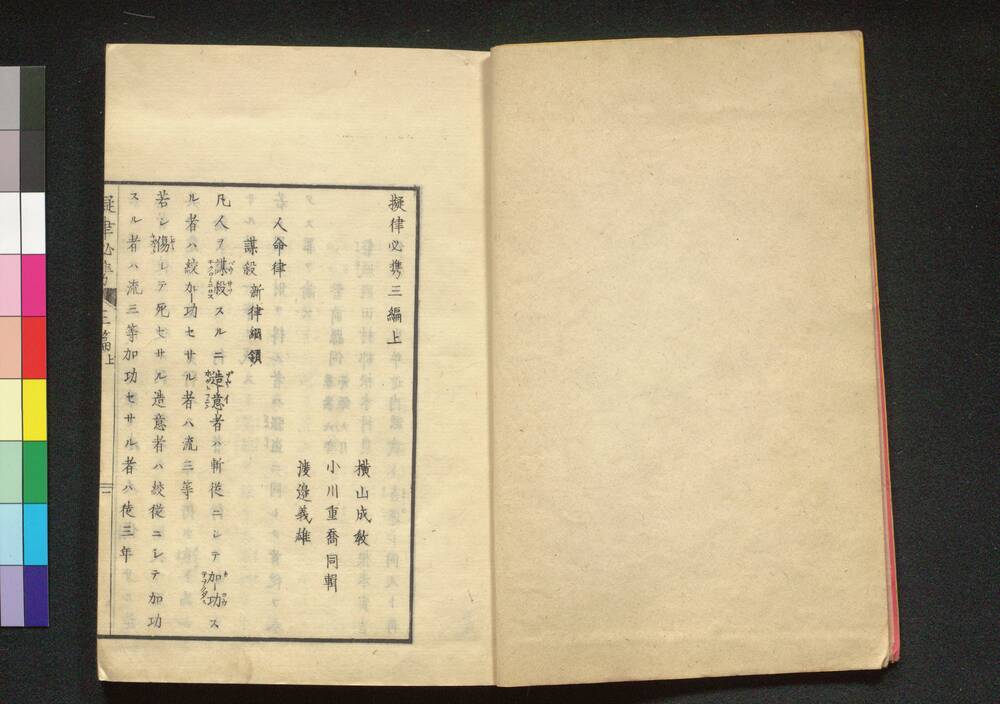 擬律必携三編上
橫山成敎
小川重喬同輯
渡邉義雄
人命律
謀殺 新律綱領
凡人ヲ謀殺スルニ造意者ハ斬從ニシテ加功ス
ル者ハ絞加功セサル者ハ流三等
若シ傷シテ死セサル造意者ハ絞從ニシテ加功
スル者ハ流三等加功セサル者ハ徒三年
擬律必携 三篇上 一